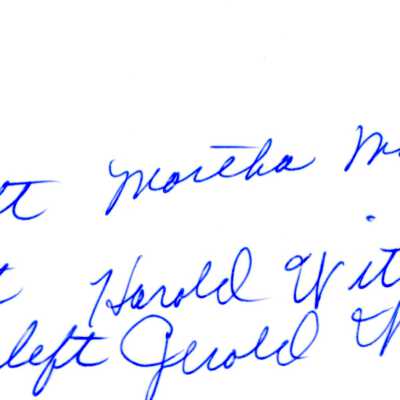 Martha
Harold Wit
left Gerold W